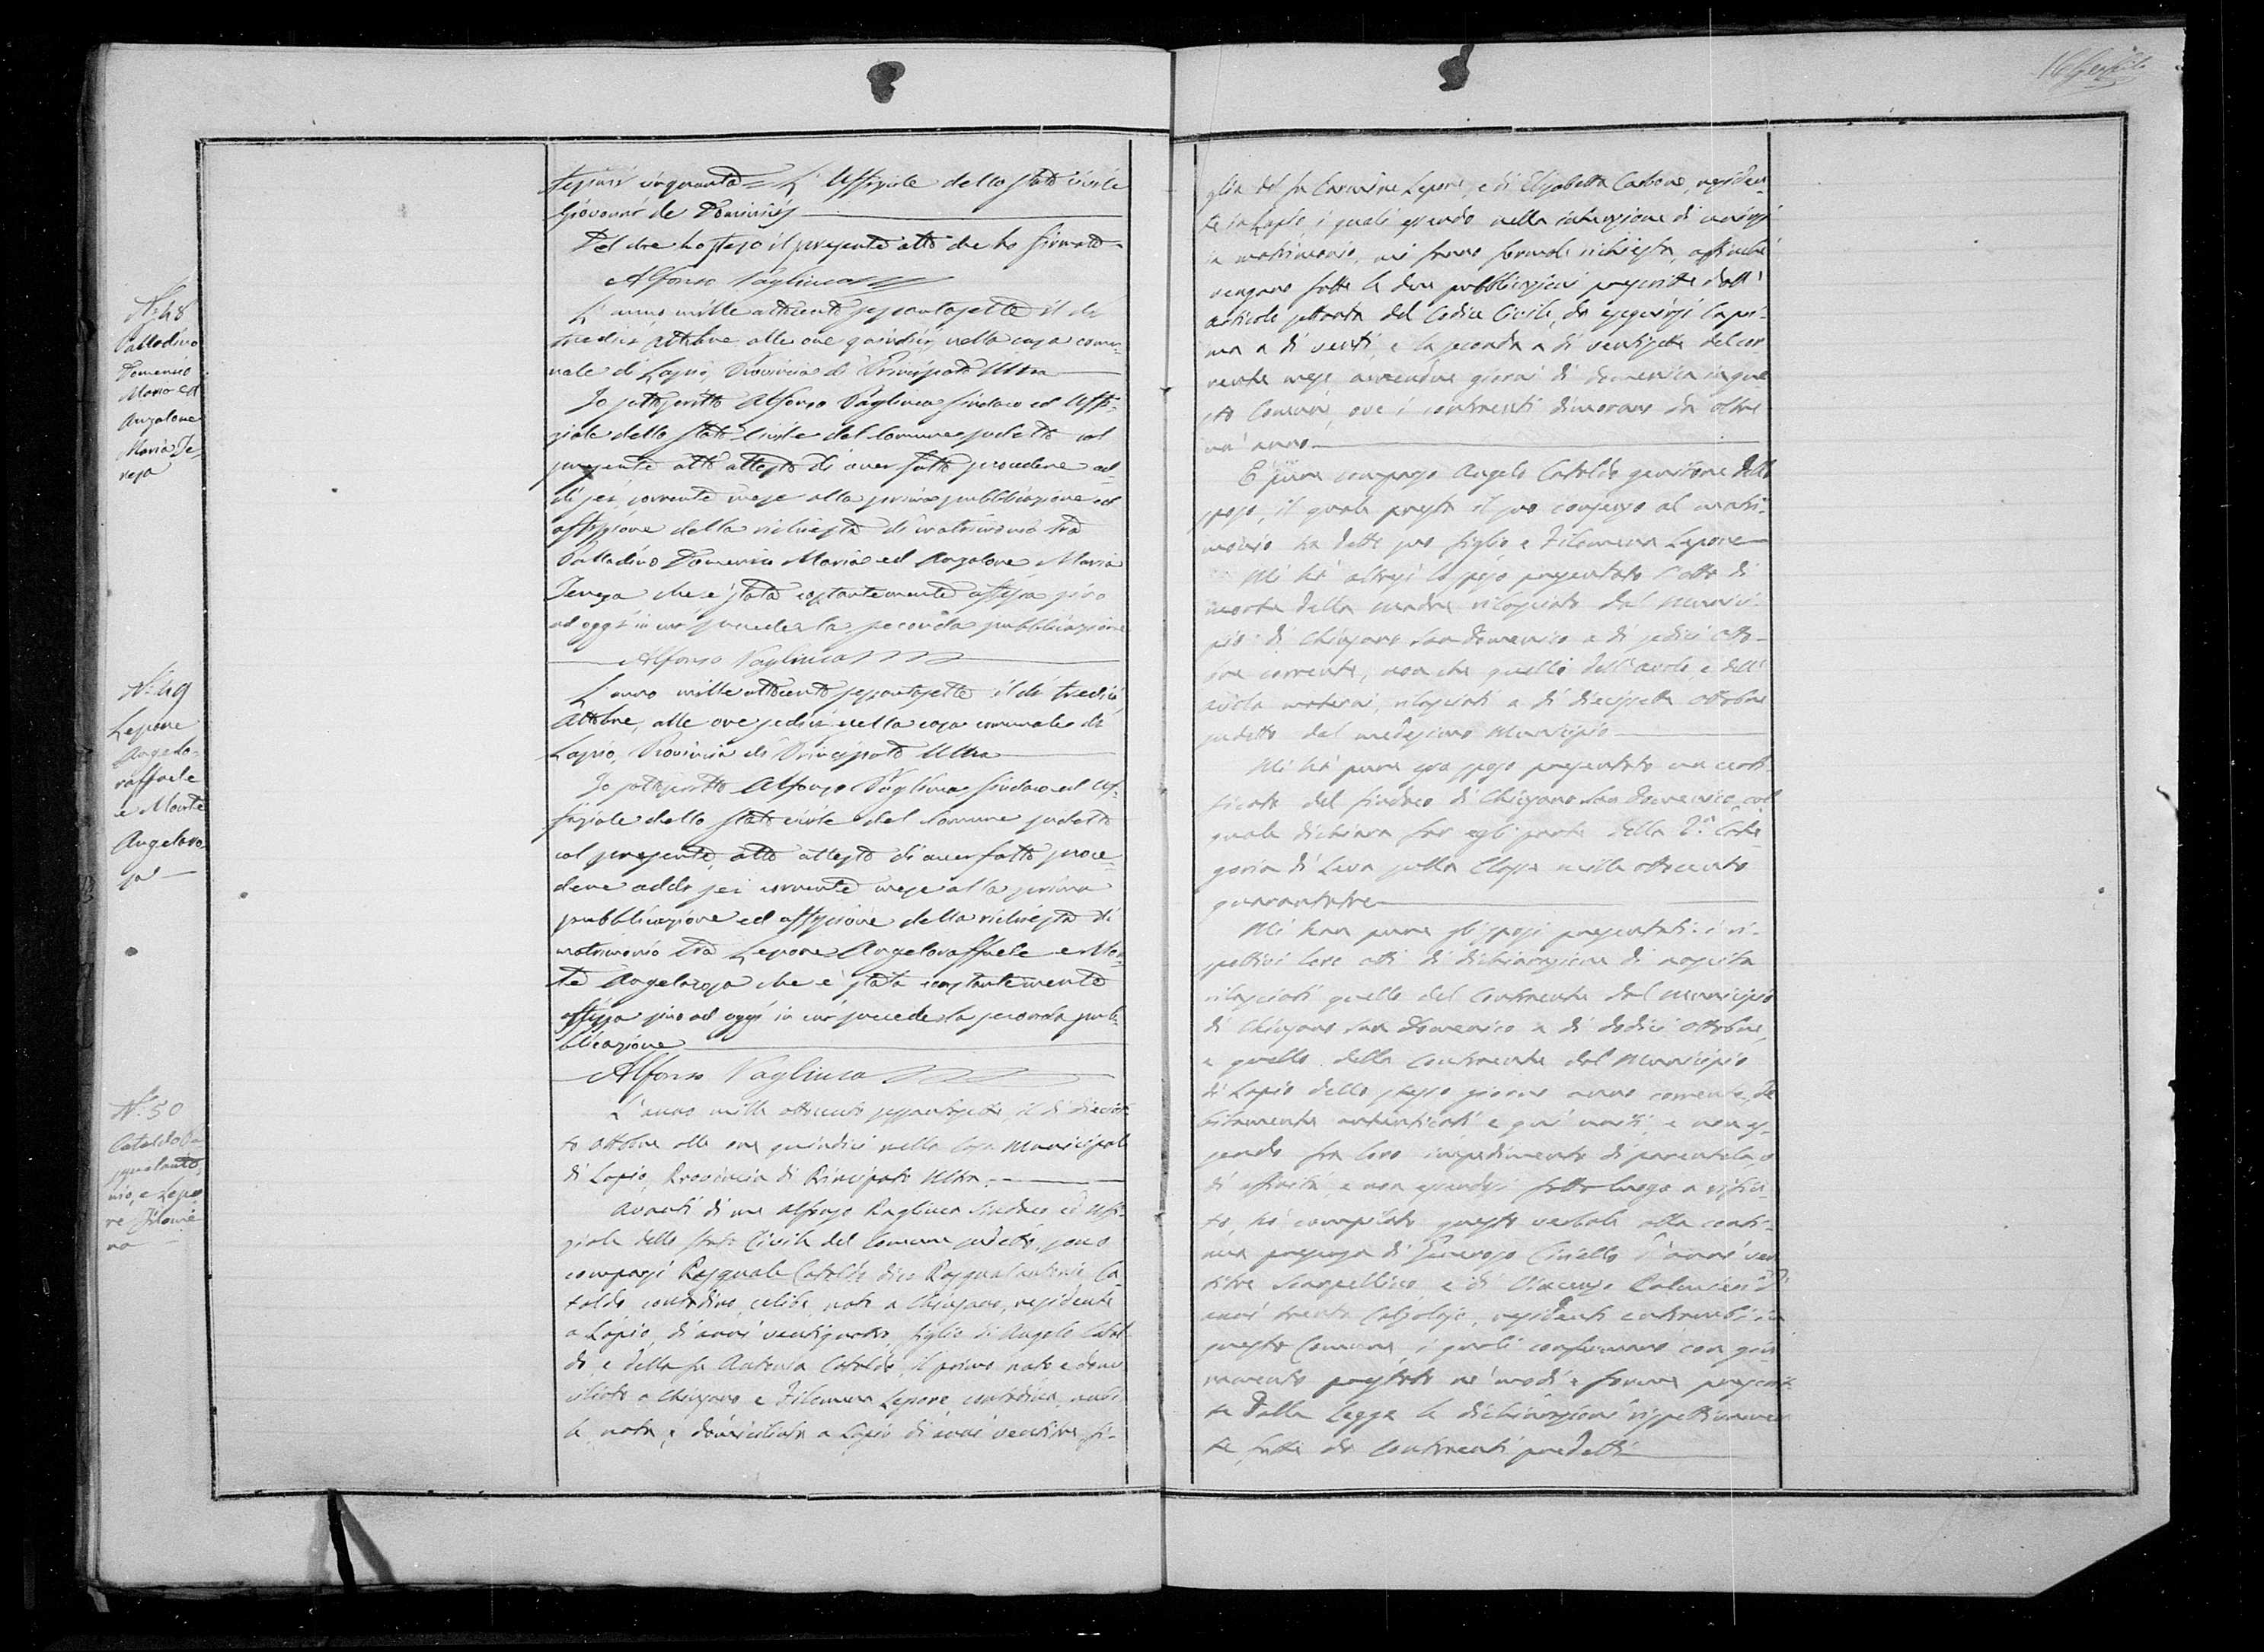 N.° 48
Palladino
Domenico
Maria ed
Anzalone
Maria Te-
resa
N.° 49
Lepore
Angelo-
raffaele
e Monte
Angelaro-
sa
N.° 50
Cataldo Pa-
squalanto-
nio, e Lepo-
re Filome-
na
cinquanta = L'Uffiziale dello stato civile
Giovanni de Dominicis
Del che ho steso il presente atto che ho firmato
Alfonso Vagliuca
L'anno mille ottocento sessantasette il dì
tredici ottobre alle ore quindici nella casa comu-
nale di Lapio, Provincia di Principato Ultra
Io sottoscritto Alfonso Vagliuca Sindaco ed Uffi-
ziale dello stato civile del Comune sudetto col
presente atto attesto di aver fatto procedere ad-
dì sei corrente mese alla prima pubblicazione ed
affissione della richiesta di matrimonio tra
Palladino Domenico Maria ed Anzalone Maria
Teresa che è stata costantemente affissa sino
ad oggi in cui succede la seconda pubblicazione
Alfonso Vagliuca
L'anno mille ottocento sessantasette il dì tredici
ottobre, alle ore sedici nella casa comunale di
Lapio, Provincia di Principato Ultra
Io sottoscritto Alfonso Vagliuca Sindaco ed Uf-
fiziale dello stato civile del Comune sudetto
col presente atto attesto di aver fatto proce-
dere addì sei corrente mese alla prima
pubblicazione ed affissione della richiesta di
matrimonio tra Lepore Angeloraffaele e Mon-
te Angelarosa che è stata costantemente
affissa sino ad oggi in cui succede la seconda pub-
blicazione
Alfonso Vagliuca
L'anno mille ottocento sessantasette, il dì diciot-
to ottobre alle ore quindici nella Casa Municipale
di Lapio, Provincia di Principato Ultra
Avanti di me Alfonso Vagliuca Sindaco ed Uffi-
ziale dello Stato Civile del Comune sudetto, sono
comparsi Pasquale Cataldo dico Pasqualantonio Ca-
taldo contadino, celibe, nato a Chiusano, residente
a Lapio, di anni ventiquattro, figlio di Angelo Catal-
do, e della fu Antonia Cataldo, il primo nato e domi-
ciliato a Chiusano e Filomena Lepore, contadina, nubi-
le, nata, e domiciliata a Lapio di anni ventitre fi-
glia del fu Carmine Lepore, e di Elisabetta Carbone, residen-
te in Lapio, i quali essendo nella intenzione di unirsi
in matrimonio, mi fanno formale richiesta, affinchè
vengano fatte le due pubblicazioni prescritte dall'
articolo settanta del Codice Civile, da eseguirsi la pri-
ma a dì venti, e la seconda a dì ventisette del cor-
rente mese, amendue giorni di domenica in que-
sto Comune, ove i contraenti dimorano da oltre
un'anno
È pure comparso Angelo Cataldo genitore dello
sposo, il quale presta il suo consenso al matri-
monio tra detto suo figlio e Filomena Lepore
Mi ha altresì lo sposo presentato l'atto di
morte della madre rilasciato dal Munici-
pio di Chiusano San Domenico a dì sedici otto-
bre corrente, non che quelli dell'avolo, e dell'
avola materni, rilasciati a dì diecisette ottobre
sudetto dal medesimo Municipio
Mi ha pure esso sposo presentato un certi-
ficato del Sindaco di Chiusano San Domenico, col
quale dichiara far egli parte della 2.ª Cate-
goria di Leva sulla Classe mille ottocento
quarantatre
Mi han pure gli sposi presentati i ri-
spettivi loro atti di dichiarazione di nascita
rilasciati quello del Contraente dal Municipio
di Chiusano San Domenico a dì dodici ottobre,
e quello della Contraente dal Municipio
di Lapio dello stesso giorno anno corrente, de-
bitamente autenticati e quì uniti, e non es-
sendo fra loro impedimento di parentela, o
di affinità, e non essendosi fatto luogo a rifiu-
to, ho compilato questo verbale alla conti-
nua presenza di Generoso Ciriello d'anni ven-
titre Scarpellino, e di Vincenzo Palmieri d'
anni trenta Calzolajo, residenti entrambi in
questo Comune, i quali confermano con giu-
ramento prestato ne' modi e forme prescrit-
te dalla Legge le dichiarazioni rispettivamen-
te fatte da contraenti predetti